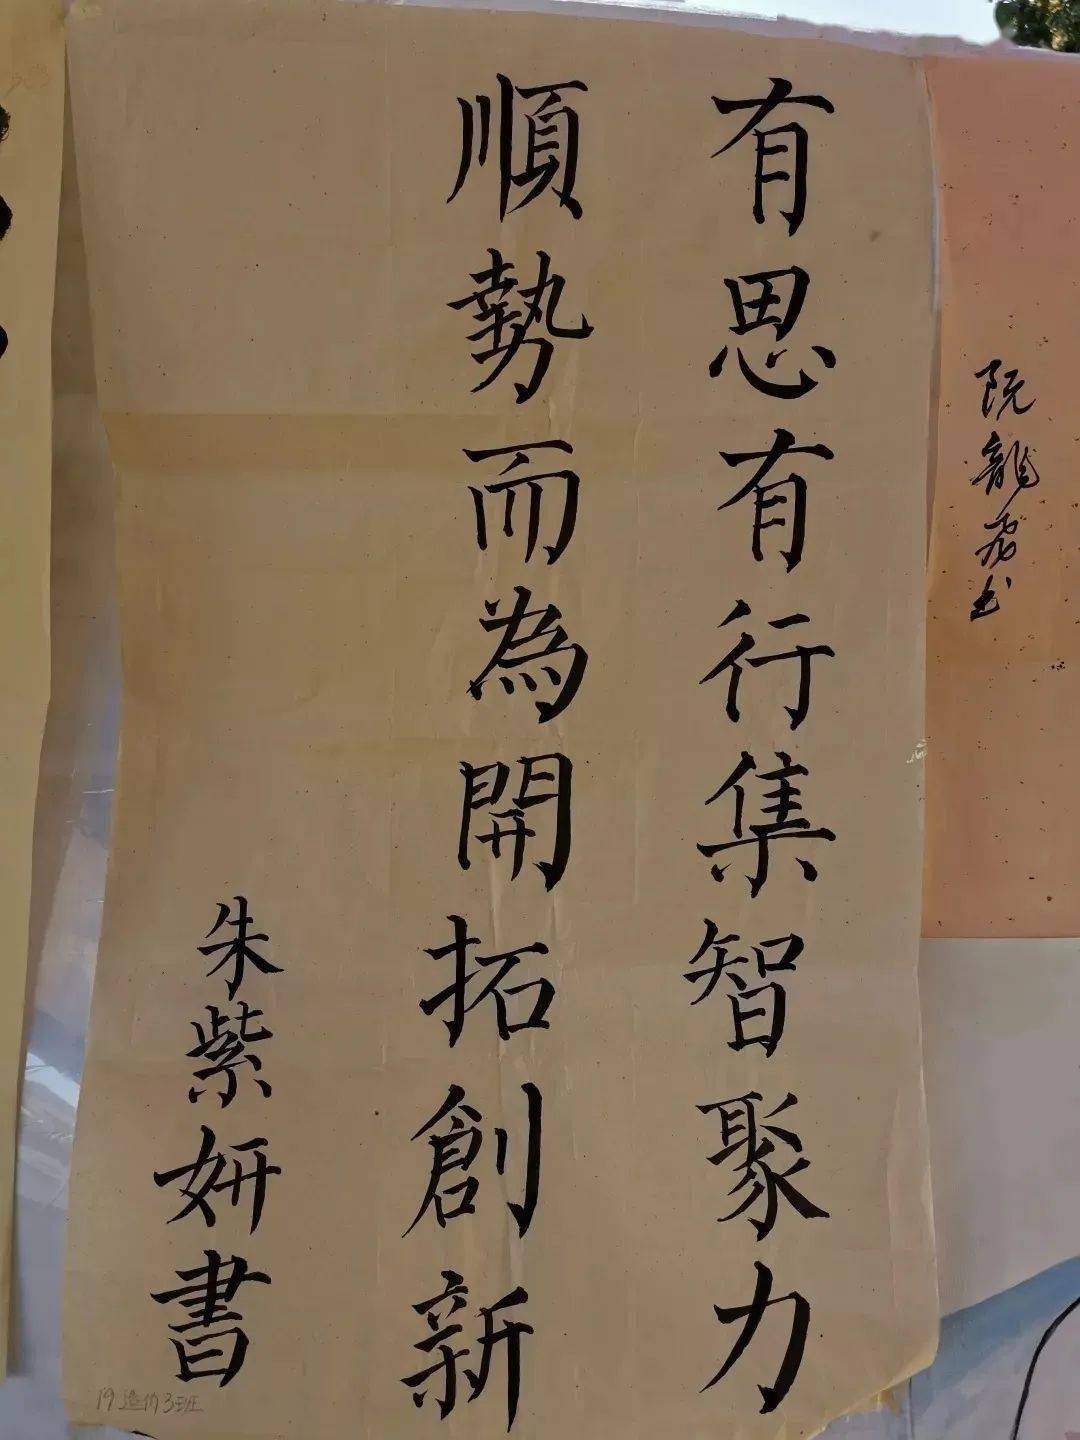 有思有行集智聚力
順勢而為開拓創新
朱紫妍書
19造价3班
阮龍飛书